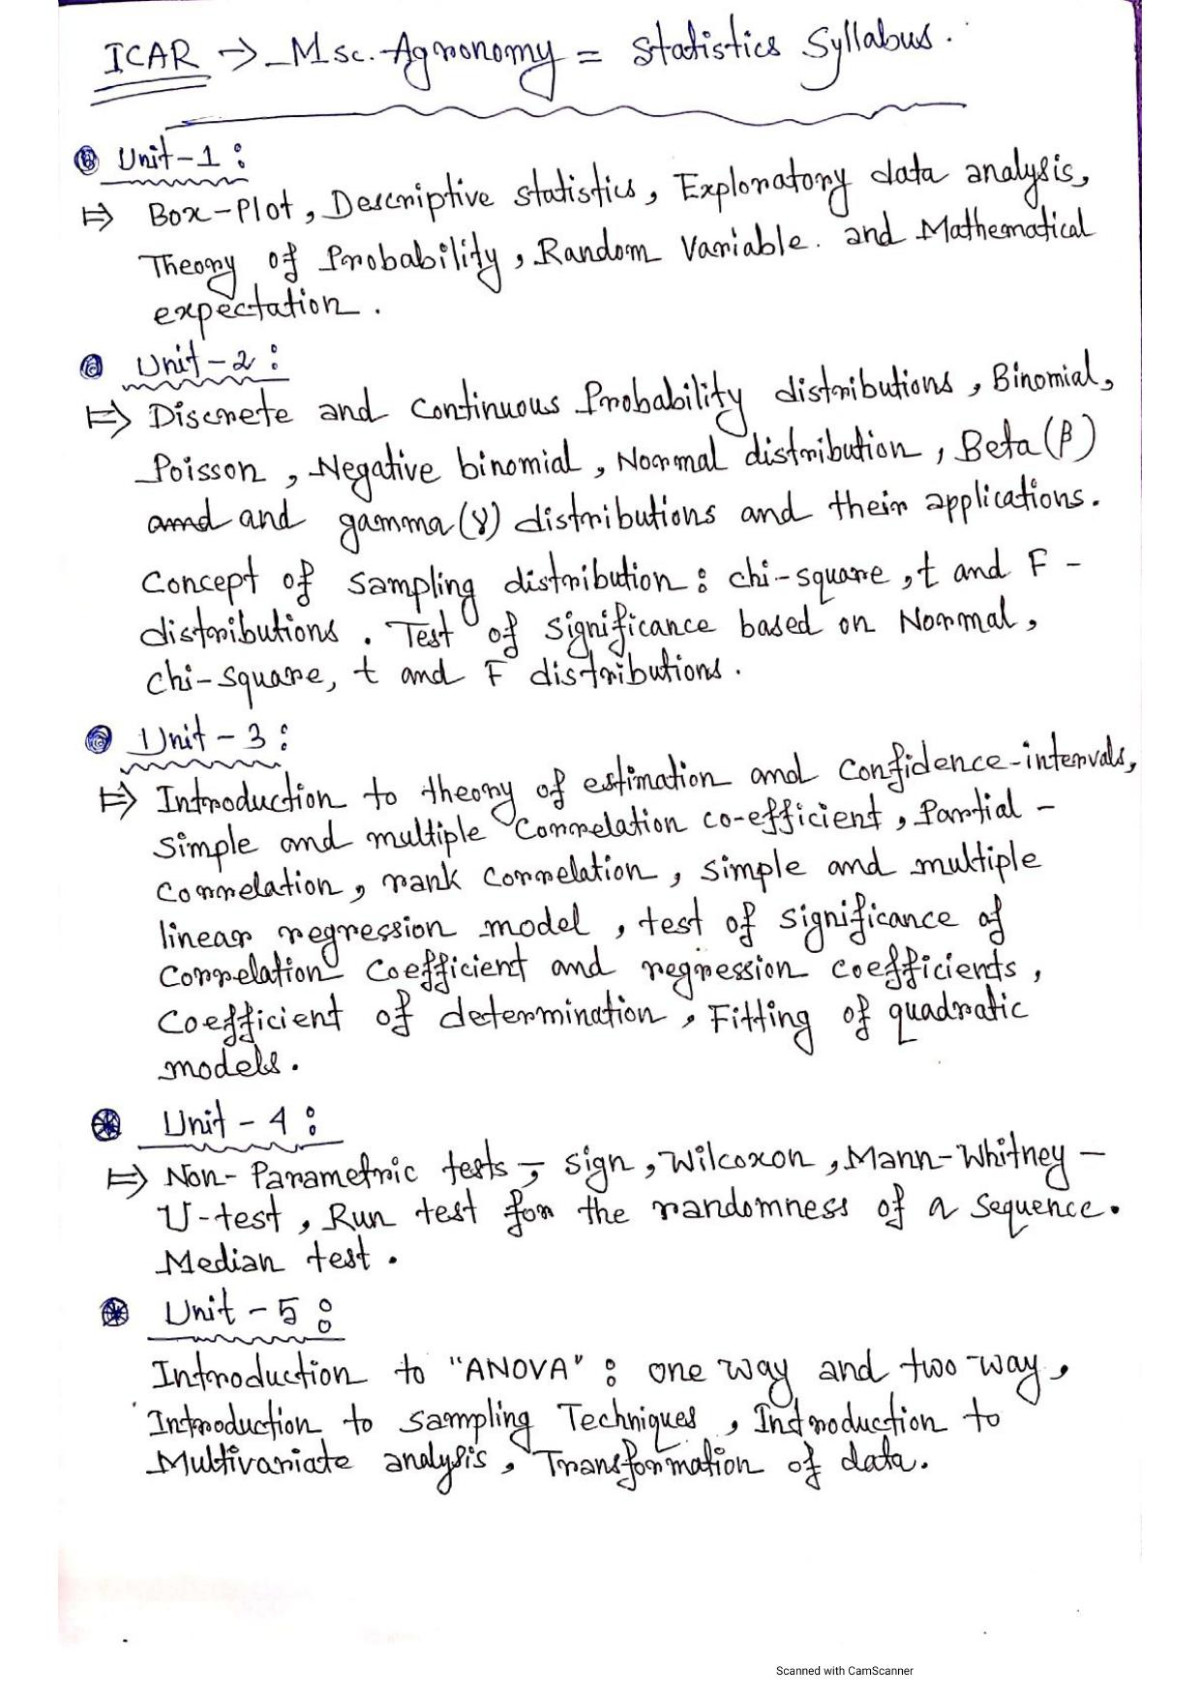 ICAR → Msc. Agronomy = Statistics Syllabus.
Unit-1:
⇒ Box-Plot, Descriptive statistics, Exploratory data analysis,
Theory of Probability, Random Variable. and Mathematical
expectation.
Unit-2:
⇒ Discrete and continuous Probability distributions, Binomial,
Poisson, Negative binomial, Normal distribution, Beta (β)
amd and gamma (γ) distributions and their applications.
Concept of sampling distribution: chi-square, t and F-
distributions. Test of significance based on Normal,
chi-square, t and F distributions.
Unit-3:
⇒ Introduction to theory of estimation and confidence-intervals,
simple and multiple Correlation co-efficient, Partial-
Correlation, rank correlation, simple and multiple
linear regression model, test of significance of
Correlation coefficient and regression coefficients,
Coefficient of determination, Fitting of quadratic
models.
Unit-4:
⇒ Non-Parametric tests -, sign, Wilcoxon, Mann-Whitney-
U-test, Run test for the randomness of a sequence.
Median test.
Unit-5:
Introduction to "ANOVA": one way and two-way,
Introduction to sampling Techniques, Introduction to
Multivariate analysis, Transformation of data.
Scanned with CamScanner